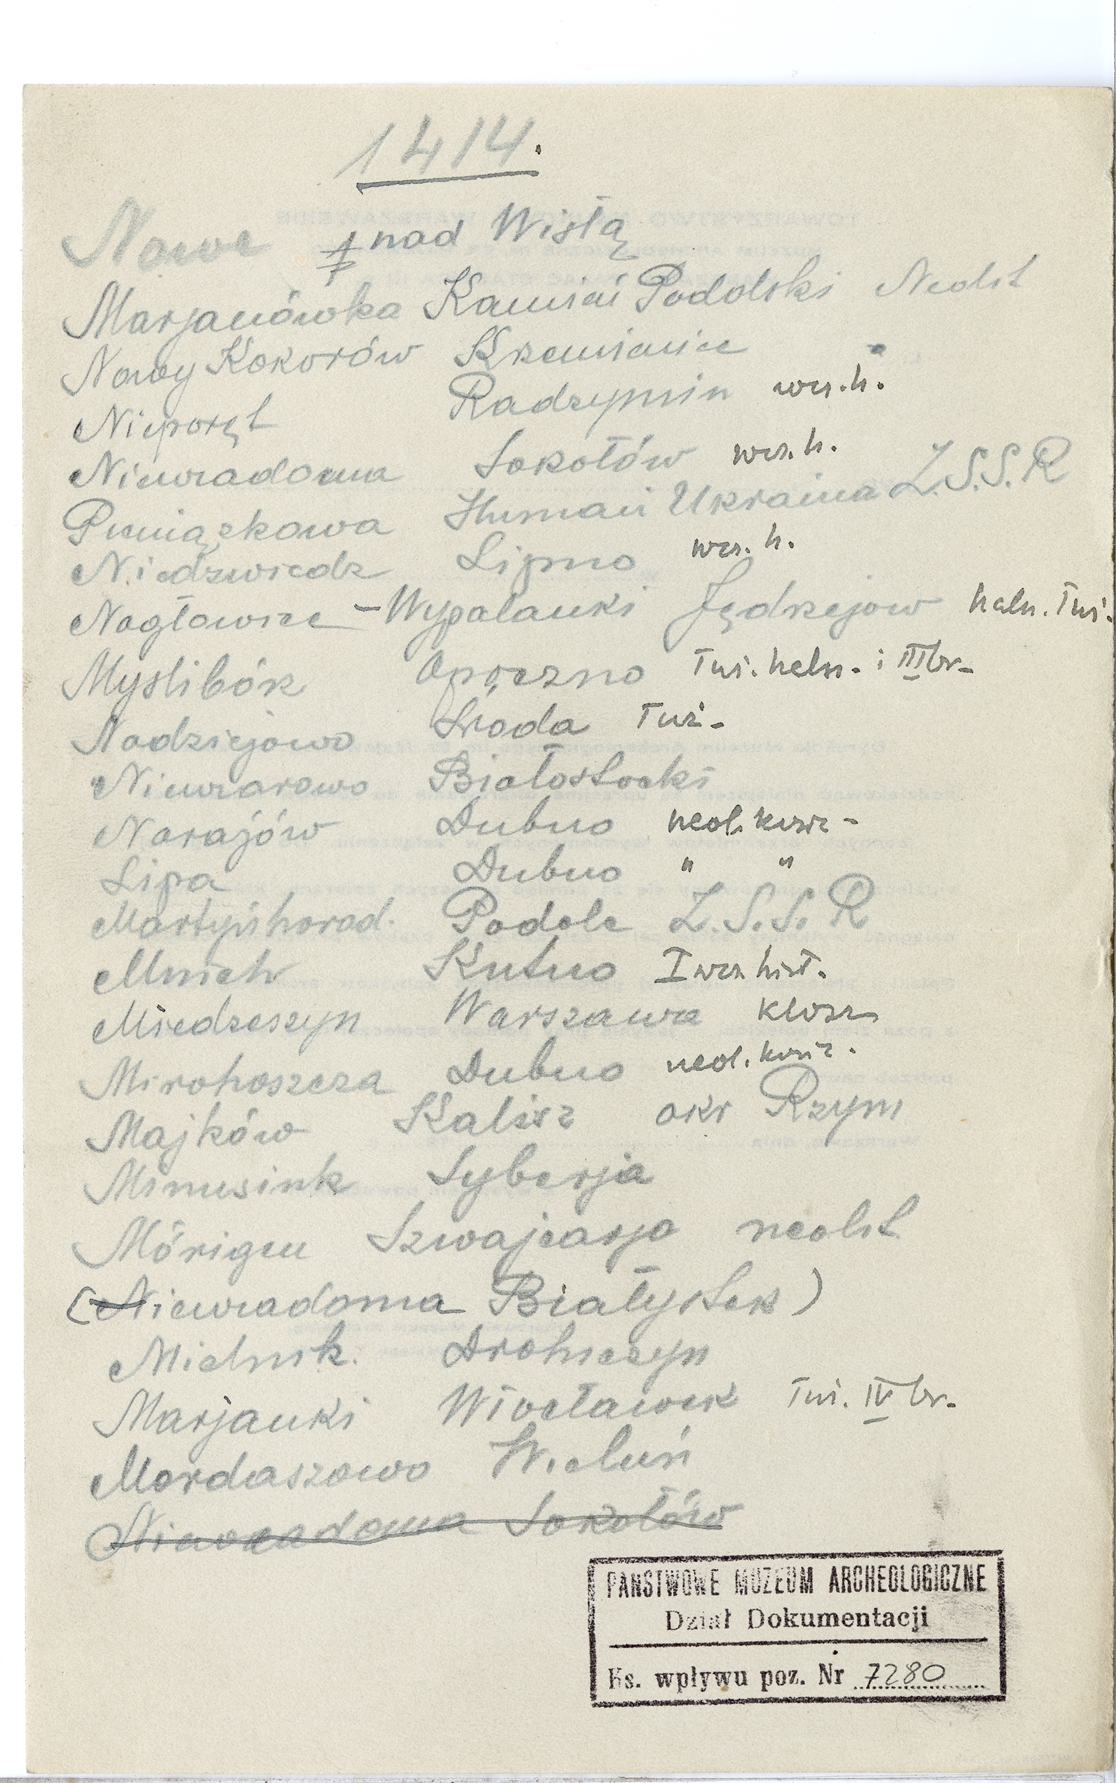 1414.
Nowe nad Wisłą
Marjanówka Kamień Podolski Neolit
Nowy Kokorów Krzemieniec
Nieporęt Radzymin wcz. h.
Niewiadoma Sokołów wcz. h.
Pieniążkowa Humań Ukraina Z.S.S.R
Niedzwiedz Lipno wcz. h.
Nagłowice - Wypalanki Jędrzejow halsz. łuż.
Myslibórz Opoczno łuż. halsz. i III br.
Nadziejewo Środa łuż.
Niewiarowo Białostocki
Narajów Dubno neol. kość.
Lipa Dubno " "
Martyńhorad. Podole Z.S.S.R
Mnich Kutno I wcz. hist.
Miedzeszyn Warszawa klosz
Mirohoszcza Dubno neol. kość.
Majków Kalisz okr Rzym
Minusink Syberja
Mórigen Szwajcarja neolit
(Niewiadoma Białystok)
Mielnik. Drohiczyn
Marjanki Włocławek łuż. IV br.
Mordaszowo Wieluń
Niewiadoma Sokołów
PAŃSTWOWE MUZEUM ARCHEOLOGICZNE
Dział Dokumentacji
Ks. wpływu poz. Nr 7280